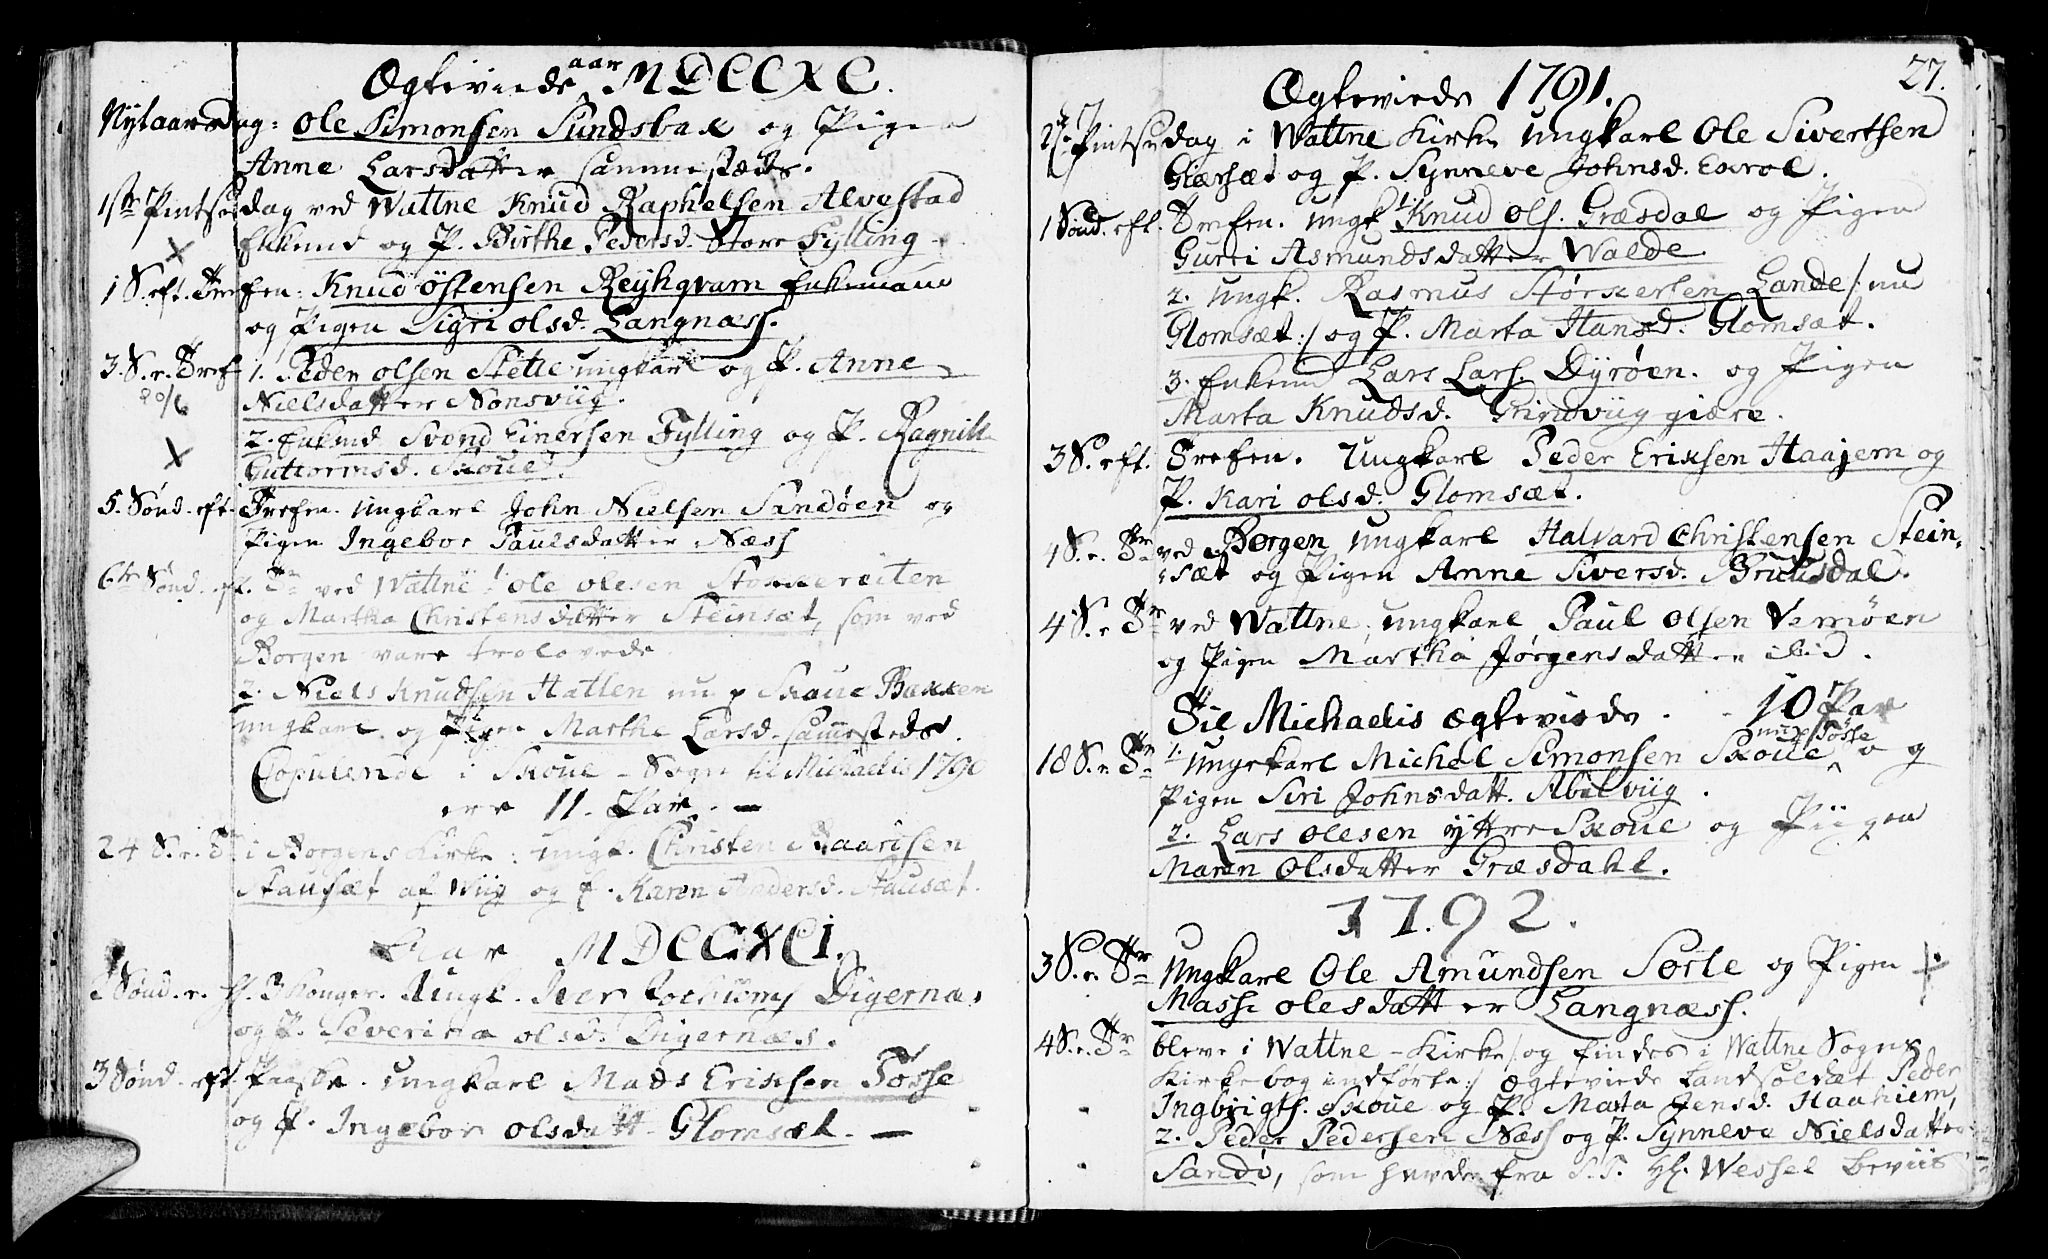 Ægteviede aar MDCCXC.
Nytaarsdag: Ole Simonsen Sundsbak og Pigen
Anne Larsdatter sammestæds.
1ste Pintsedag ved Wattne Knud Raphelsen Alvestad
Enkemd og P. Birthe Pedersd. Store Fylling
1 S. eft. Trefen: Knud Østensen Reyhqvam Enkemand
og Pigen Sigri olsd. Langnæss.
3. S. e. Tref 1. Peder olsen Stette ungkarl og P. Anne
20/6 Nielsdatter Nonsviig.
2. Enkmd Svend Einersen Fylling og P. Ragnill
Guttormsd. Skoue.
5. Sønd. eft. Trefen. Ungkarl John Nielsen Sandøen og
Pigen Ingebor Paulsdatter Næss
6te Sønd. eft. Tr ved Wattne 1. ole olesen Stokkereiten
og Martha Christensdatter Steinsæt, som ved
Borgen vare trolovede
2. Niels Knudsen Hatlen nu p Skoue Bakken
ungkarl og Pigen Marthe Larsd. sammesteds.
Copulerede i Skoue-Sogn til Michaelis 1790
ere 11. Par. -
24 S. e. Tr i Borgens Kirke: ungk. Christen
Stausæt af Wiig og P. Karen Andersd. Stausæt.
Aar MDCCXCI.
Sønd. e. H. 3 Konger. Ungk. Iver Digernæs
og P. Severina olsd. Digernæs.
3 Sønd. eft. Paaske. ungkarl Mads Erixsen Tøsse
og P. Ingebor olsdatt Glomsæt. -
27.
Ægteviede 1791.
2. Pintsedag i Wattne Kirke Ungkarl Ole Sivertsen
Giærsæt og P. Synneve Johnsd. Exrol.
1 Sønd. eft. Trefen. ungk. 1. Knud ols. Græsdal og Pigen
Gurri Asmundsdatter Walde
2. ungk. Rasmus Størkersen Lande /: nu
Glomsæt :/ og P. Marta Hansd. Glomsæt.
3. Enkemd Lars Lars. Dyrøen. og Pigen
Marta Knudsd. Grindviig giære.
3 S. eft. Trefen. Ungkarl Peder Erixsen Haajem og
P. Kari olsd. Glomsæt.
4 S. e. Tr ved Borgen Ungkarl Halvard Christensen Stein-
sæt og Pigen Anne Siversd. Bruusdal.
4 S. e Tr ved Wattne, ungkarl Paul olsen Vemøen
og Pigen Martha Jørgensdatter ibid.
Til Michaelis ægteviede. - 10 Par
18 S. e. Tr 1. Ungekarl Michel Simonsen Skoue nu Tøsse og
Pigen Siri Johnsdatt. Abelviig.
2. Lars olesen ÿttre Skoue og Piigen
Maren Olsdatter Græsdahl.
1792.
3 S. e. Tr Ungkarl Ole Amundsen Sorte og Pigen
Massi olesdatter Langnæss.
4 S. e. Tr bleve i Wattne-Kirke /: og findes i Wattne Sogns
Kirkebog indførte :/ ægteviede Landsoldat Peder
Ingbrigts. Skoue og P. Marta Jensd. Haahiem,
2. Peder Pedersen Næss og P. Synneve Nielsdatter
Sandø, som havde fra S. T. Hr. Wessel Beviis